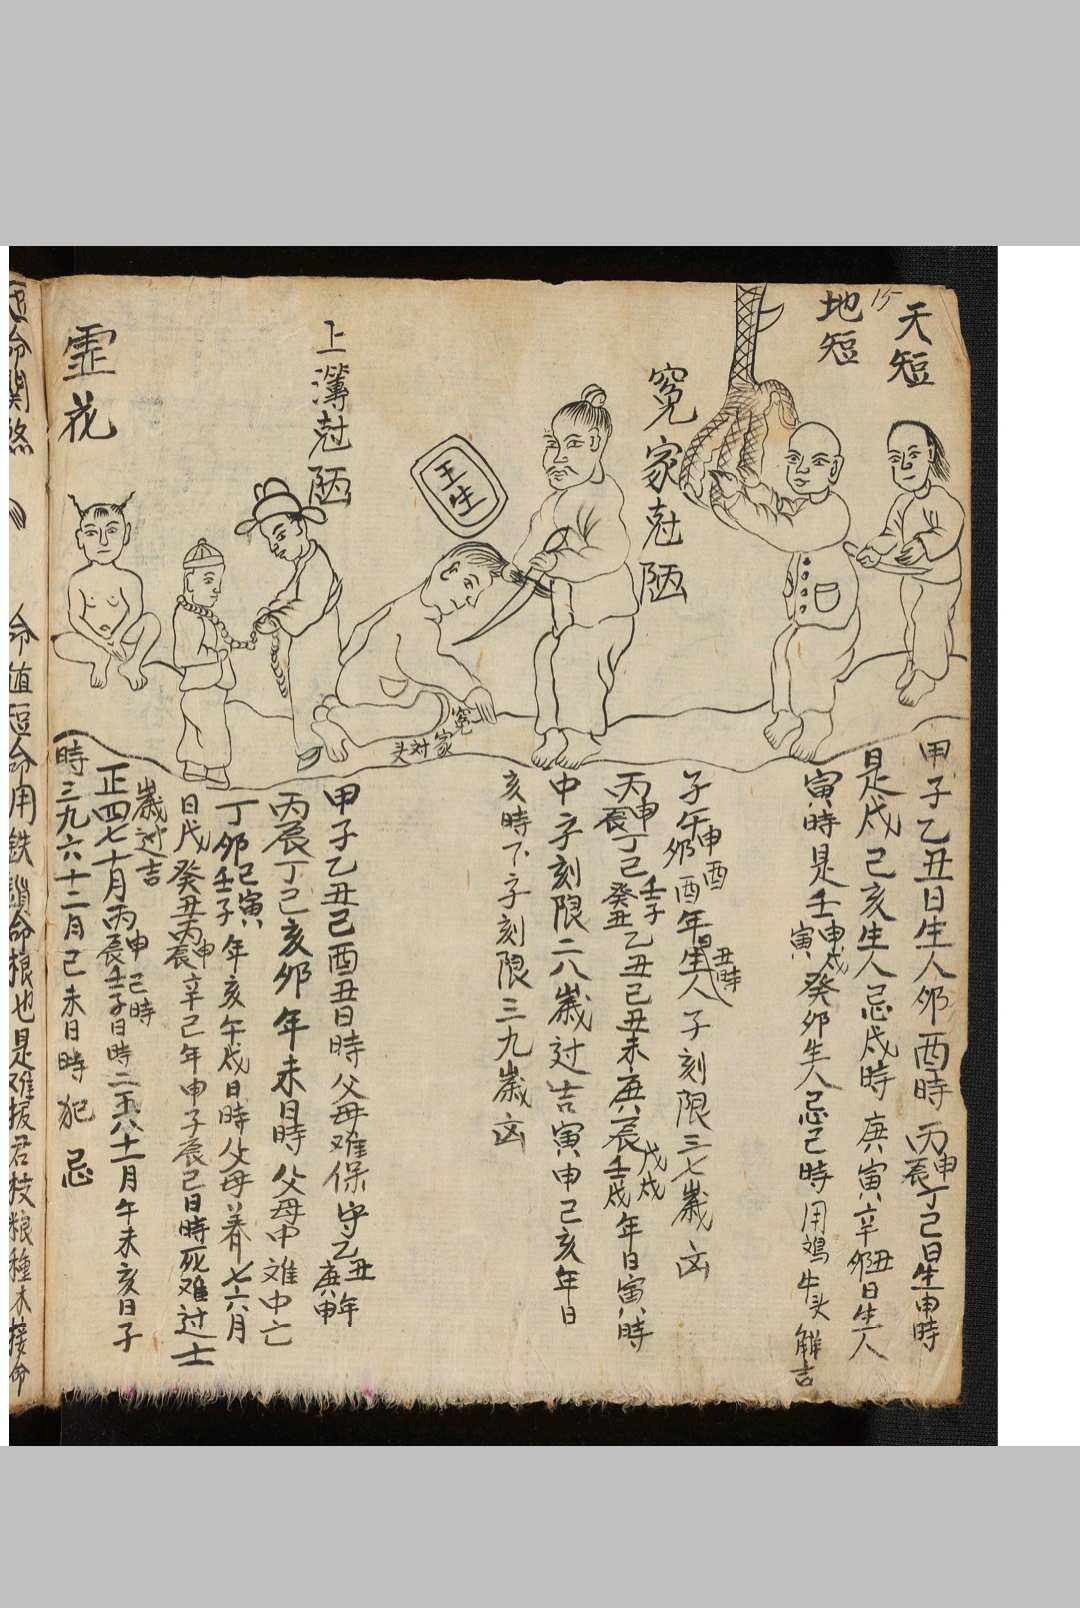 15
天短
地短
冤家尅陋
王生
冤家対头
上簿尅陋
霊花
甲子乙丑日生人夘酉時丙申丙辰丁己日生申時
是戍己亥生人忌戍時庚寅辛丑夘日生人
寅時是壬申戍寅癸夘生人忌己時用鴻牛头觧吉
子午申酉夘酉年生人日丑時子刻限三七歲凶
丙申辰丁己壬子癸丑乙丑己丑未庚辰戊戍壬戍年日寅時
中字刻限二八歲过吉寅申己亥年日
亥時下字刻限三九歲凶
甲子乙丑己酉丑日時父母难保守乙丑年庚申
丙辰丁己亥夘年未日時父母中难中亡
丁夘己寅壬子年亥午戍日時父母养七六月
日戊癸丑丙申辰辛己年申子辰己日時死难过士
歲过吉
正四七十月丙申辰壬子日己時時二五八十一月午未亥日子
時三九六十二月己未日時犯忌
短命関煞
命值短命用鉄鎖命根也是难拔君枝粮種木接命